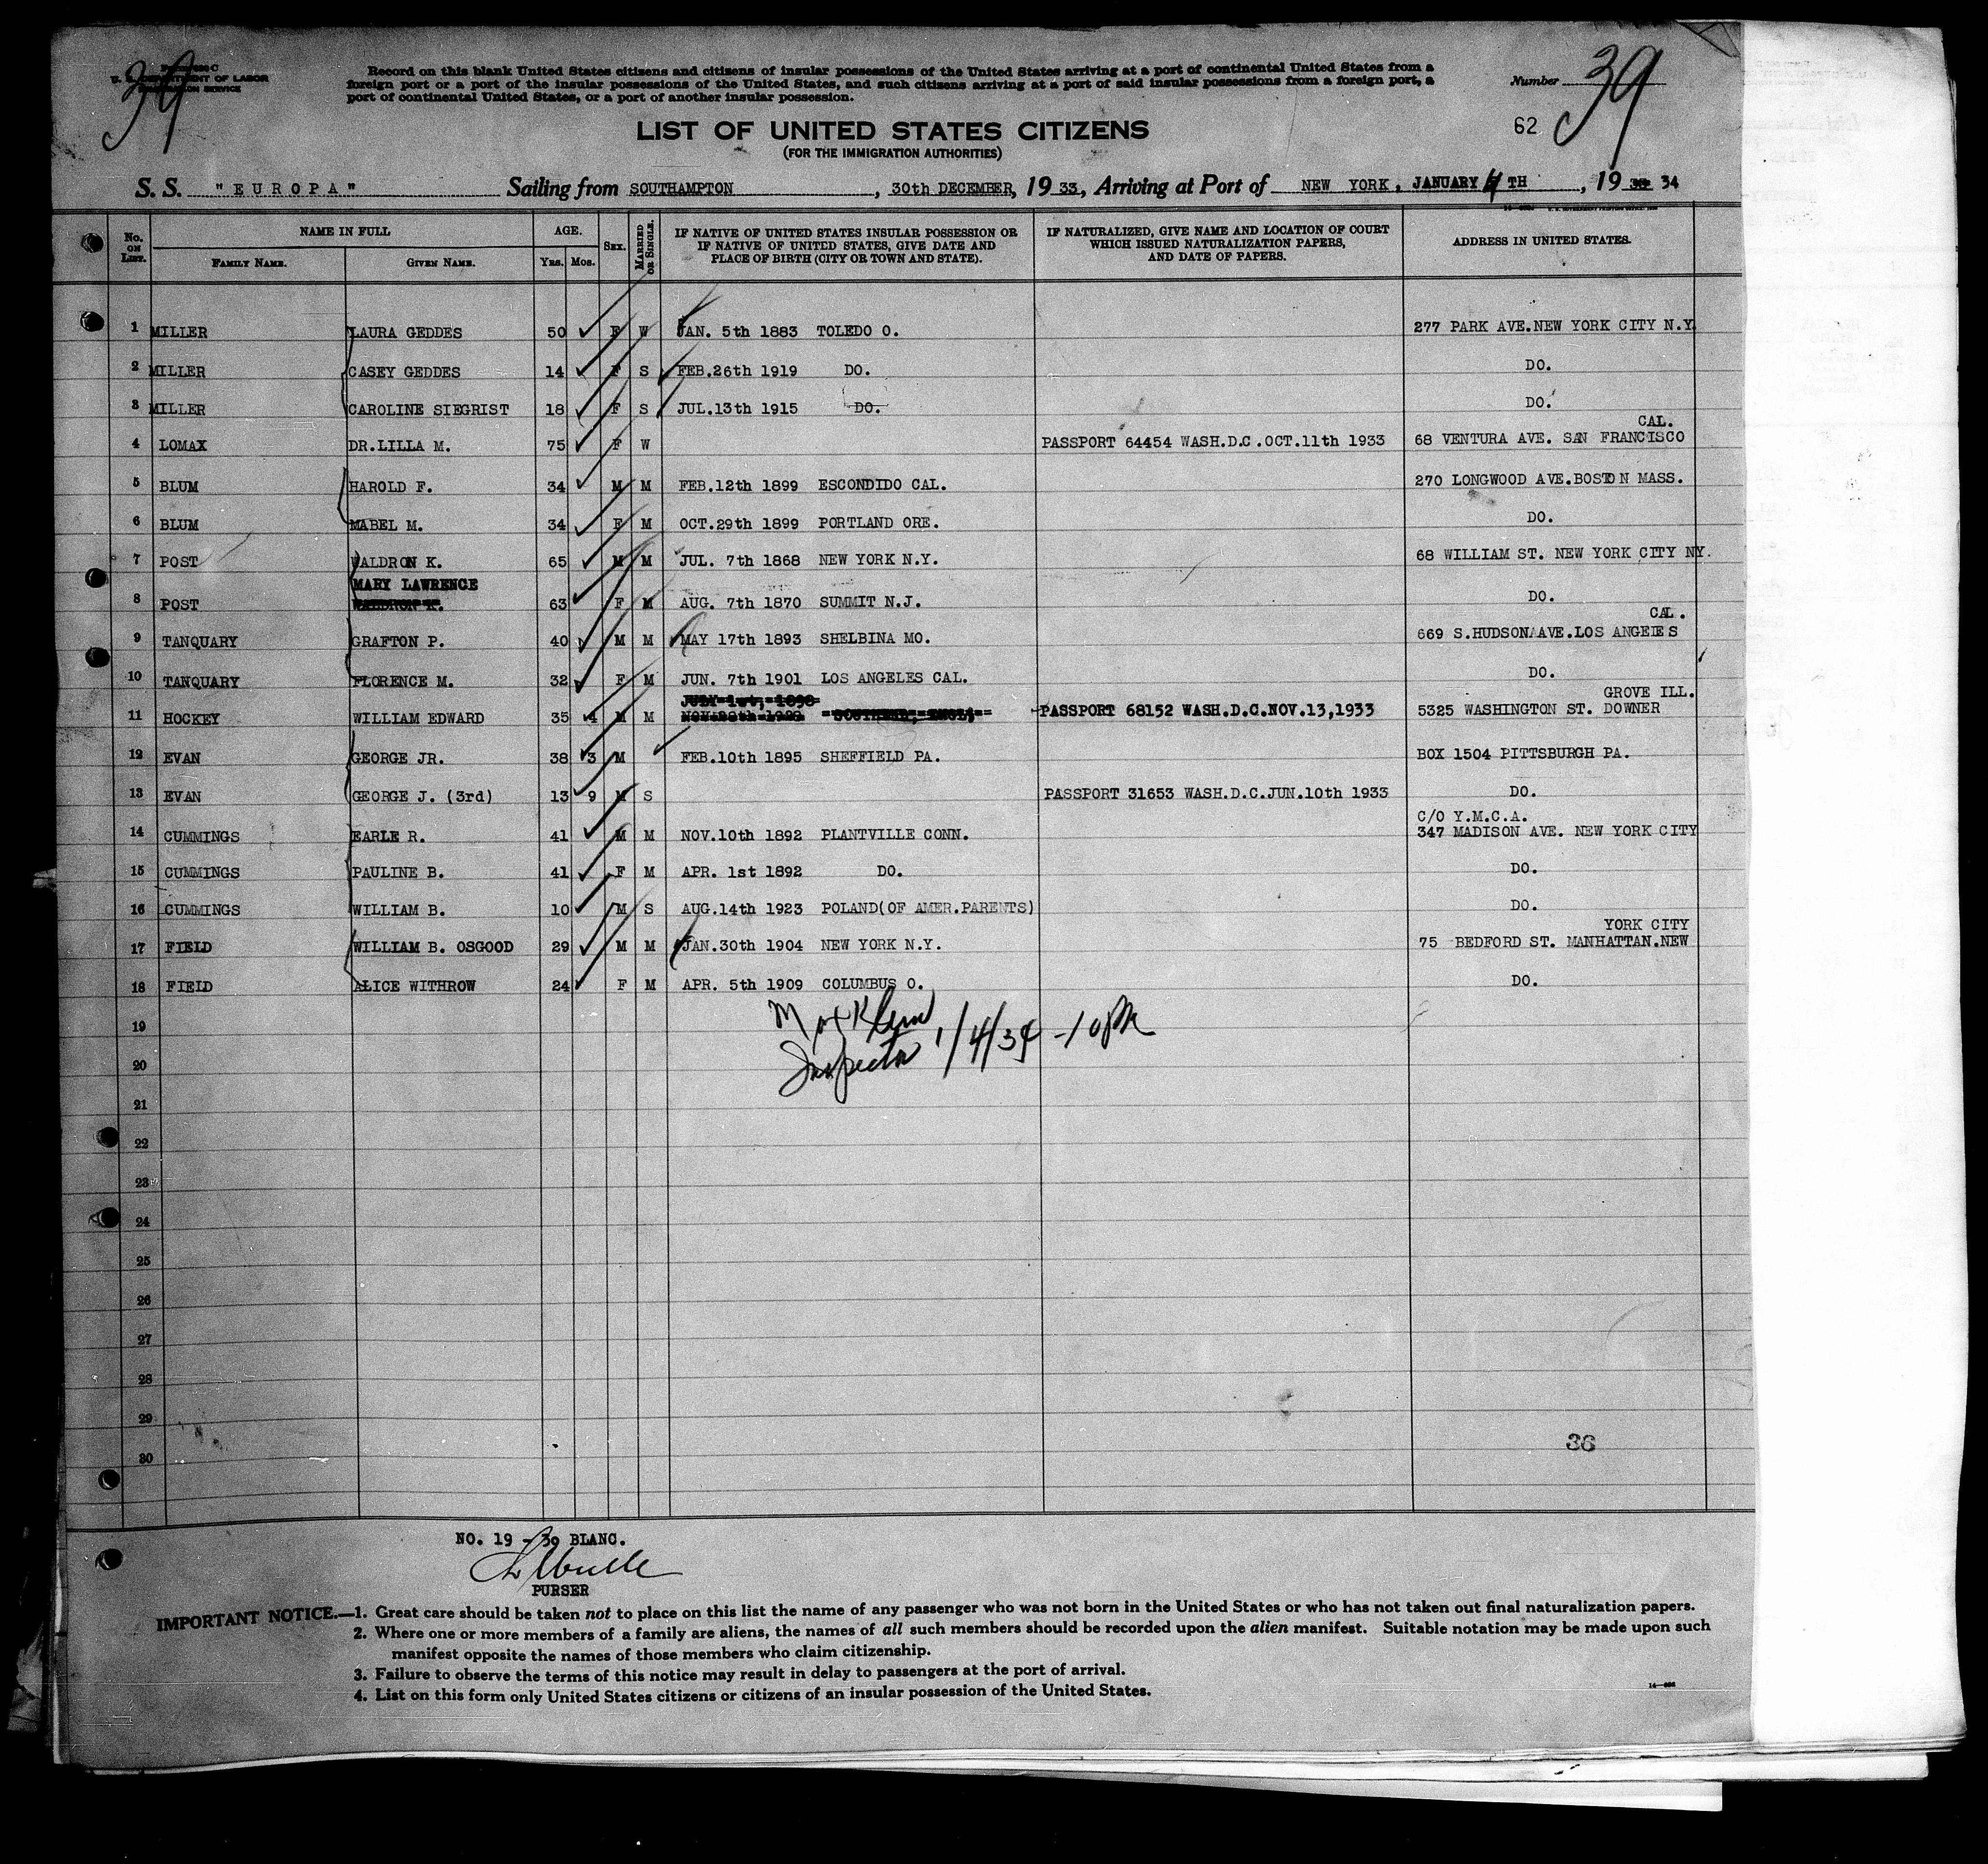 39
U. S. DEPARTMENT OF LABOR
IMMIGRATION SERVICE
Record on this blank United States citizens and citizens of insular possessions of the United States arriving at a port of continental United States from a
foreign port or a port of the insular possessions of the United States, and such citizens arriving at a port of said insular possessions from a foreign port, a
port of continental United States, or a port of another insular possession.
Number 39
LIST OF UNITED STATES CITIZENS
62
(FOR THE IMMIGRATION AUTHORITIES)
S. S. "EUROPA" Sailing from SOUTHAMPTON, 30th DECEMBER, 1933, Arriving at Port of NEW YORK, JANUARY 4 TH, 19 34
No. ON LIST. NAME IN FULL AGE. SEX. MARRIED OR SINGLE. IF NATIVE OF UNITED STATES INSULAR POSSESSION OR IF NATIVE OF UNITED STATES, GIVE DATE AND PLACE OF BIRTH (CITY OR TOWN AND STATE). IF NATURALIZED, GIVE NAME AND LOCATION OF COURT WHICH ISSUED NATURALIZATION PAPERS, AND DATE OF PAPERS. ADDRESS IN UNITED STATES.
FAMILY NAME. GIVEN NAME. YRS. MOS.
1 MILLER LAURA GEDDES 50 F W JAN. 5th 1883 TOLEDO O. 277 PARK AVE.NEW YORK CITY N.Y.
2 MILLER CASEY GEDDES 14 F S FEB.26th 1919 DO. DO.
3 MILLER CAROLINE SIEGRIST 18 F S JUL.13th 1915 DO. DO.
CAL.
4 LOMAX DR.LILLA M. 75 F W PASSPORT 64454 WASH.D.C.OCT.11th 1933 68 VENTURA AVE. SAN FRANCISCO
5 BLUM HAROLD F. 34 M M FEB.12th 1899 ESCONDIDO CAL. 270 LONGWOOD AVE.BOSTON MASS.
6 BLUM MABEL M. 34 F M OCT.29th 1899 PORTLAND ORE. DO.
7 POST WALDRON K. 65 M M JUL. 7th 1868 NEW YORK N.Y. 68 WILLIAM ST. NEW YORK CITY NY.
MARY LAWRENCE
8 POST WALDRON K. 63 F M AUG. 7th 1870 SUMMIT N.J. DO.
CAL.
9 TANQUARY GRAFTON P. 40 M M MAY 17th 1893 SHELBINA MO. 669 S.HUDSON AVE.LOS ANGELES
10 TANQUARY FLORENCE M. 32 F M JUN. 7th 1901 LOS ANGELES CAL. DO.
JULY 1st, 1898 GROVE ILL.
11 HOCKEY WILLIAM EDWARD 35 4 M M SOUTHEND, ENGL; PASSPORT 68152 WASH.D.C.NOV.13,1933 5325 WASHINGTON ST. DOWNER
12 EVAN GEORGE JR. 38 3 M FEB.10th 1895 SHEFFIELD PA. BOX 1504 PITTSBURGH PA.
13 EVAN GEORGE J. (3rd) 13 9 M S PASSPORT 31653 WASH.D.C.JUN.10th 1933 DO.
C/O Y.M.C.A.
14 CUMMINGS EARLE R. 41 M M NOV.10th 1892 PLANTVILLE CONN. 347 MADISON AVE. NEW YORK CITY
15 CUMMINGS PAULINE B. 41 F M APR. 1st 1892 DO. DO.
16 CUMMINGS WILLIAM B. 10 M S AUG.14th 1923 POLAND(OF AMER.PARENTS) DO.
YORK CITY
17 FIELD WILLIAM B. OSGOOD 29 M M JAN.30th 1904 NEW YORK N.Y. 75 BEDFORD ST. MANHATTAN.NEW
18 FIELD ALICE WITHROW 24 F M APR. 5th 1909 COLUMBUS O. DO.
19 Max Klein
20 Inspector 1/4/34 -10PM
21
22
23
24
25
26
27
28
29
36
30
NO. 19 - 30 BLANC.
PURSER
IMPORTANT NOTICE.—1. Great care should be taken not to place on this list the name of any passenger who was not born in the United States or who has not taken out final naturalization papers.
2. Where one or more members of a family are aliens, the names of all such members should be recorded upon the alien manifest. Suitable notation may be made upon such
manifest opposite the names of those members who claim citizenship.
3. Failure to observe the terms of this notice may result in delay to passengers at the port of arrival.
4. List on this form only United States citizens or citizens of an insular possession of the United States.